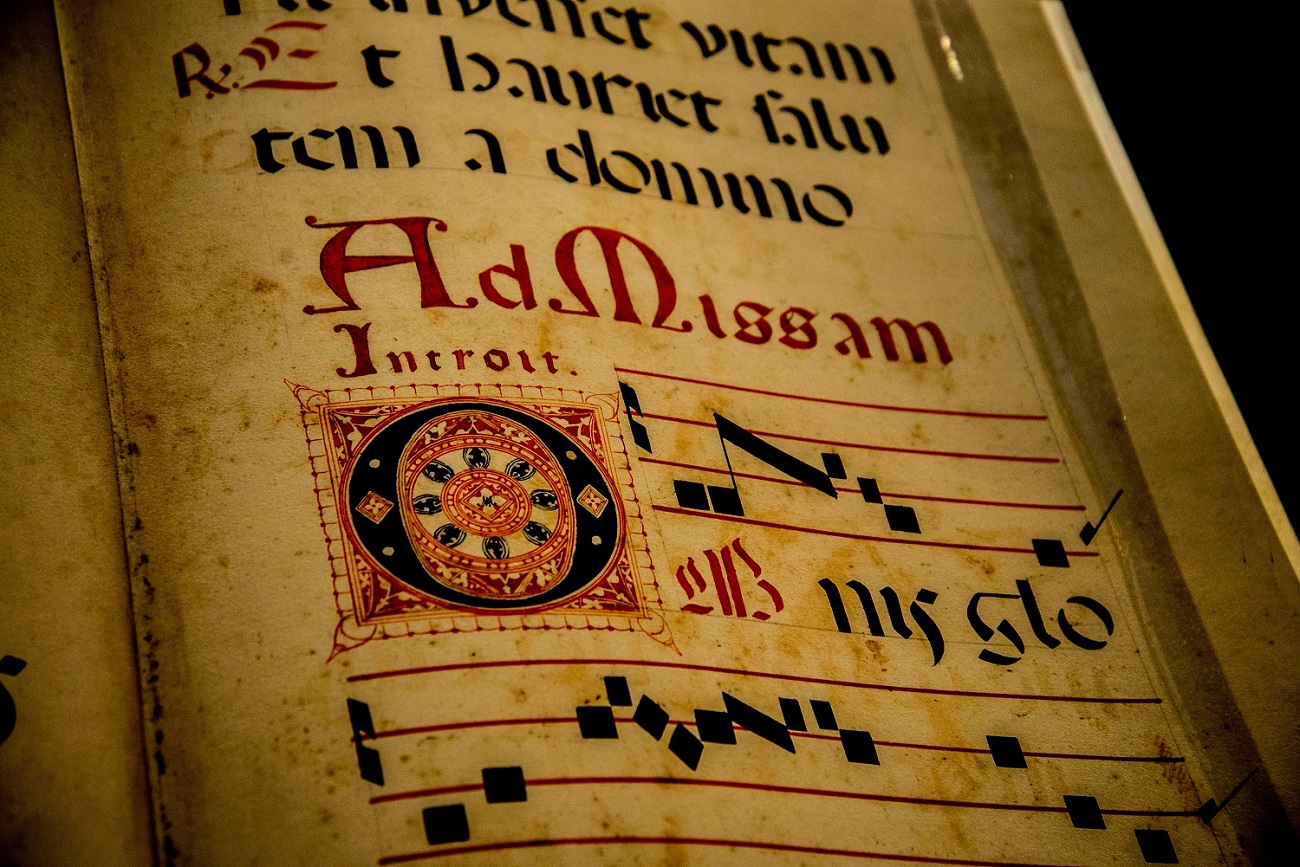 invenict vitam
R. Et hauriet salu
tem a domino
Ad Missam
Introit.
OMnis glo